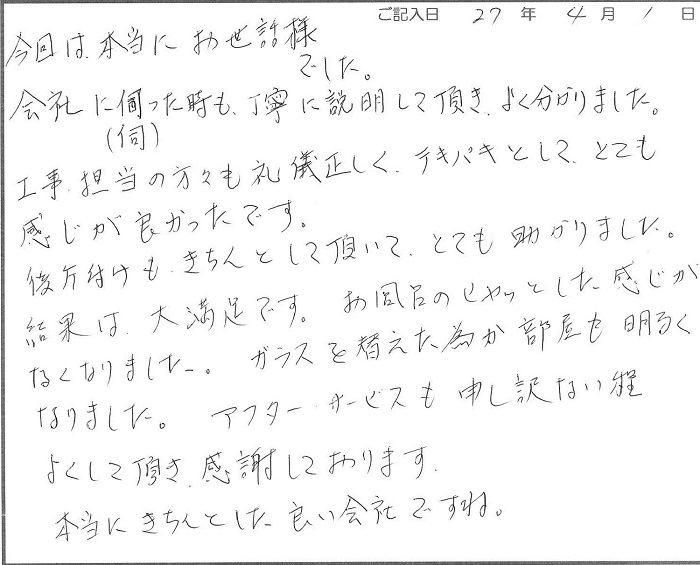 ご記入日 27 年 4 月 1 日
今回は、本当にお世話様
でした。
会社に伺った時も、丁寧に説明して頂き、よく分かりました。
(伺)
工事担当の方々も礼儀正しく、テキパキとして、とても
感じが良かったです。
後片付けも、きちんとして頂いて、とても助かりました。
結果は、大満足です。お風呂のヒヤッとした感じが
なくなりました。ガラスを替えた為か部屋も明るく
なりました。アフターサービスも申し訳ない程
よくして頂き、感謝しております。
本当にきちんとした良い会社ですね。